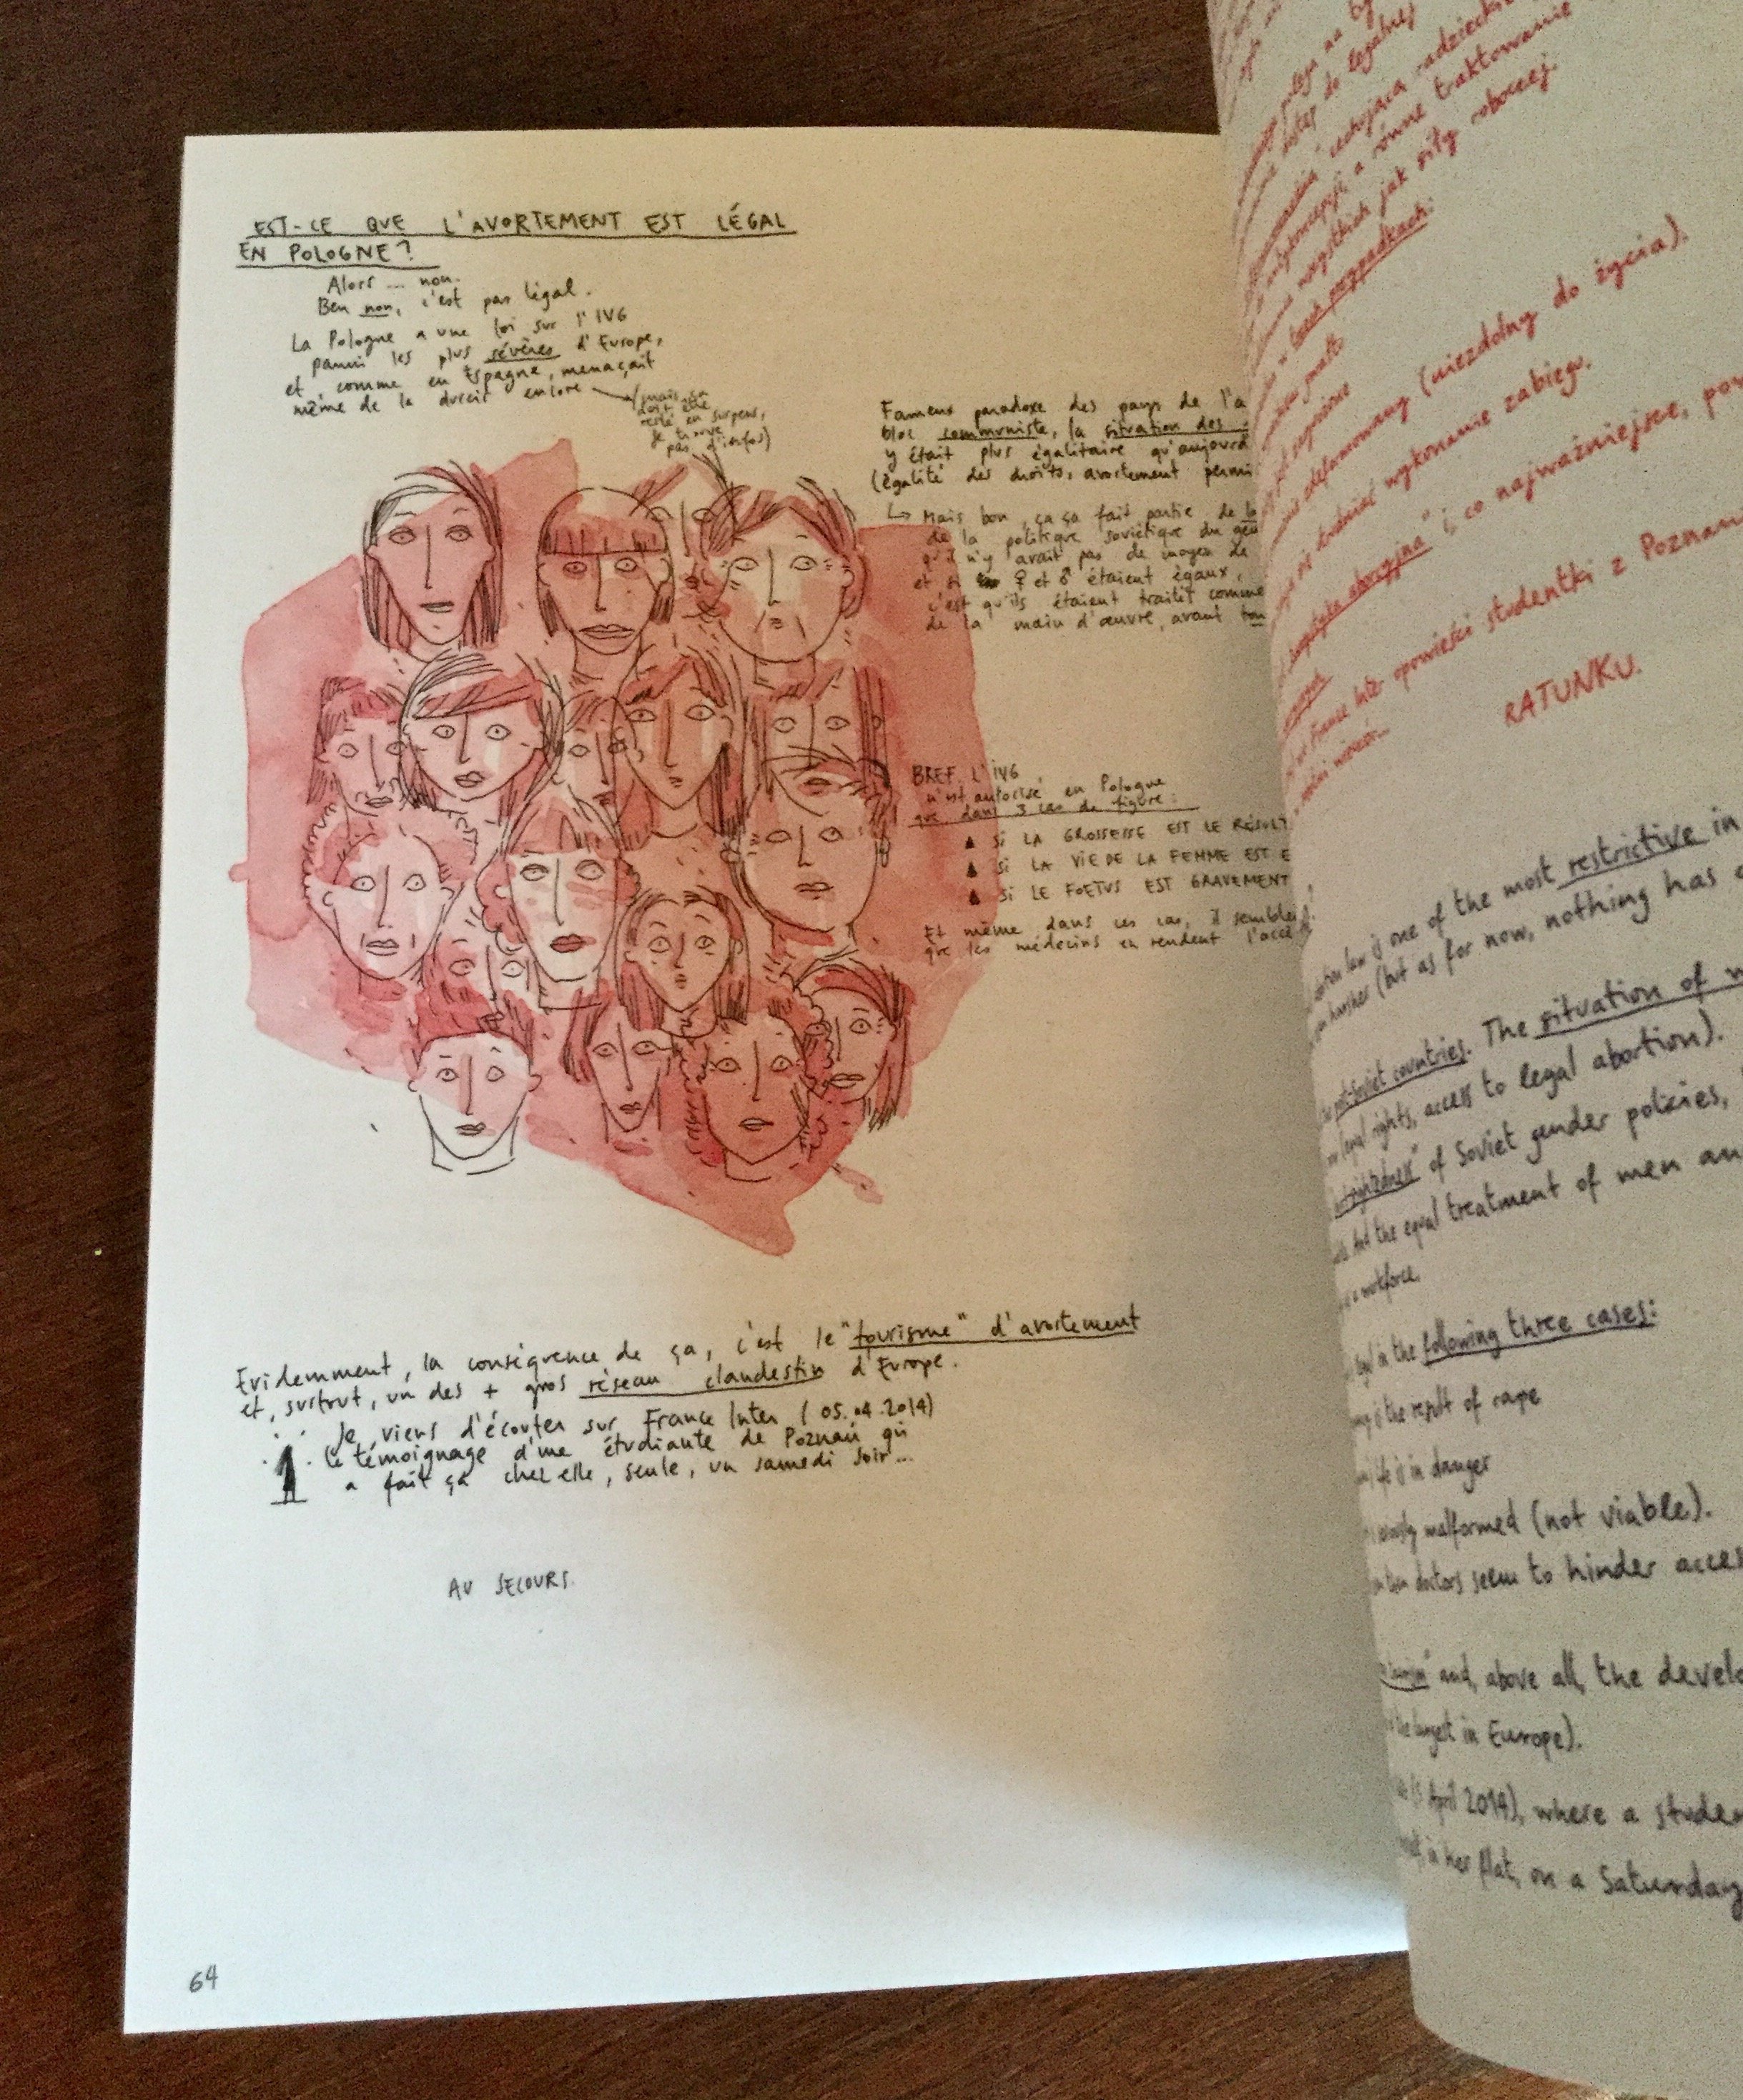 EST-CE QUE L'AVORTEMENT EST LÉGAL
EN POLOGNE?
Alors ... non.
Ben non, c'est pas légal.
La Pologne a une loi sur l'IVG
parmi les plus sévères d'Europe,
et, comme en Espagne, menaçait
même de la durcir encore
(mais ça
doit être
resté en suspens,
je trouve
pas d'infos)
Fameux paradoxe des pays de l'a
bloc communiste, la situation des
y était plus égalitaire qu'aujourd
(égalité des droits, avortement permi
Mais bon, ça ça fait partie de la
de la politique soviétique du
qu'il n'y avait pas de moyen de
et si ♀ et ♂ étaient égaux,
c'est qu'ils étaient traité comme
de la main d'œuvre, avant tou
BREF. L'IVG
n'est autorisé en Pologne
que dans 3 cas de figure:
▲ SI LA GROSSESSE EST LE RÉSULT
▲ SI LA VIE DE LA FEMME EST E
▲ SI LE FOETUS EST GRAVEMENT
Et même dans ces cas, il semble
que les médecins en rendent l'accè
Evidemment, la conséquence de ça, c'est le "tourisme" d'avortement
et, surtout, un des + gros réseau clandestin d'Europe.
Je viens d'écouter sur France Inter (05.04.2014)
le témoignage d'une étudiante de Poznań qui
a fait ça chez elle, seule, un samedi soir...
AU SECOURS.
64
polega na
dostęp do legalnej
cechująca radzieckie
antykoncepcji, a równe traktowanie
wszystkich jak siły roboczej.
w trzech przypadkach:
zdeformowany (niezdolny do życia).
utrudniać wykonanie zabiegu.
turystyka aborcyjna" i, co najważniejsze, pow
France Inter opowieści studentki z Poznani
wieczór...
RATUNKU.
law is one of the most restrictive in
harsher (but as for now, nothing has c
post-Soviet countries. The situation of w
legal rights, access to legal abortion).
of Soviet gender policies,
And the equal treatment of men an
workforce.
legal in the following three cases:
is the result of rape
life is in danger
malformed (not viable).
doctors seem to hinder acces
and, above all, the develo
the largest in Europe).
April 2014), where a studen
in her flat, on a Saturday